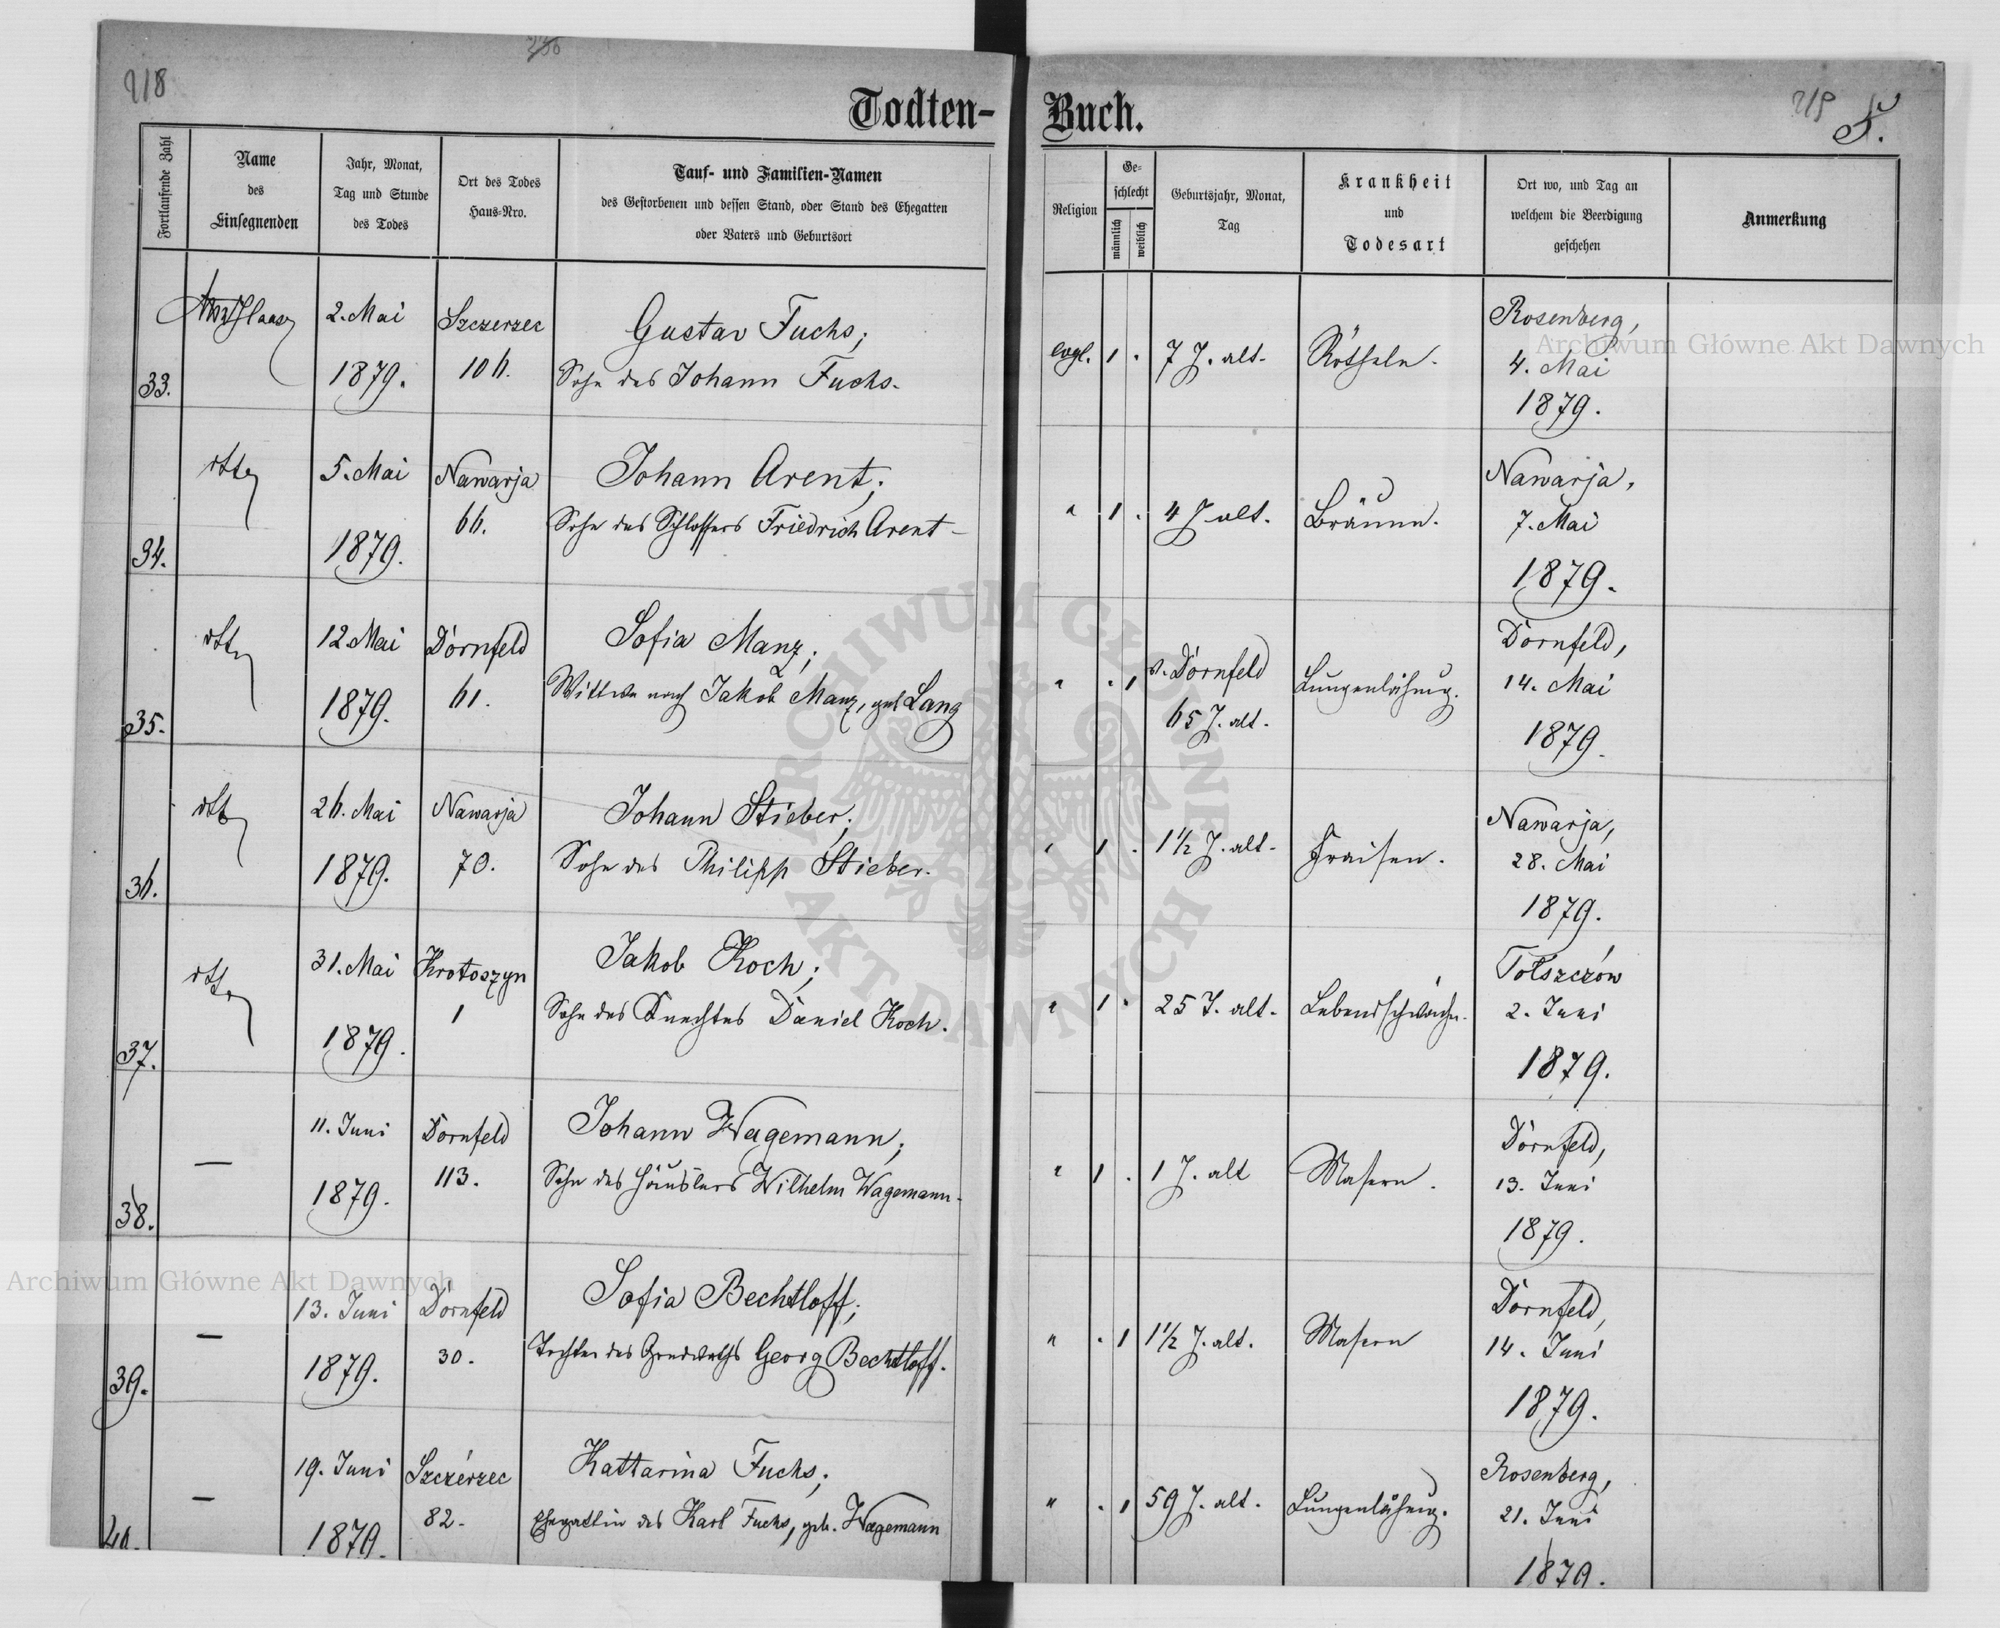 218
Todten-
Fortlaufende Zahl
Name
des
Einsegnenden
Jahr, Monat,
Tag und Stunde
des Todes
Ort des Todes
Haus-Nro.
Tauf- und Familien-Namen
des Gestorbenen und dessen Stand, oder Stand des Ehegatten
oder Vaters und Geburtsort
33.
2. Mai
1879.
Szczerzec
106.
Gustav Fuchs;
Sohn des Johann Fuchs.
34.
dtto
5. Mai
1879.
Nawarja
66.
Johann Arent;
Sohn des Schlossers Friedrich Arent
35.
dtto
12 Mai
1879.
Dornfeld
61.
Sofia Manz;
Wittwe nach Jakob Manz, geb Lang
36.
dtto
26. Mai
1879.
Nawarja
70.
Johann Stieber;
Sohn des Philipp Stieber.
37.
dtto
31. Mai
1879.
Krotoszyn
1
Jakob Koch;
Sohn des Knechtes Daniel Koch.
38.
—
11. Juni
1879.
Dornfeld
113.
Johann Wagemann;
Sohn des Häuslers Wilhelm Wagemann.
39.
—
13. Juni
1879.
Dornfeld
30.
Sofia Bechtloff;
Tochter des Georg Bechtloff.
40.
—
19. Juni
1879.
Szczerzec
82.
Kattarina Fuchs;
Ehegattin des Karl Fuchs, geb. Wagemann
219
5.
Buch.
Religion
Ge-
schlecht
männlich
weiblich
Geburtsjahr, Monat,
Tag
Krankheit
und
Todesart
Ort wo, und Tag an
welchem die Beerdigung
geschehen
Anmerkung
evgl.
1
7 J. alt.
Rötheln.
Rosenberg,
4. Mai
1879.
"
1
4 J. alt.
Bräune.
Nawarja,
7. Mai
1879.
"
1
v. Dornfeld
65 J. alt.
Lungenlähmg.
Dornfeld,
14. Mai
1879.
"
1
1½ J. alt.
Fraisen.
Nawarja,
28. Mai
1879.
"
1
25 J. alt.
Lebensschwäche.
Tolszczów
2. Juni
1879.
"
1
1 J. alt
Masern.
Dornfeld,
13. Juni
1879.
"
1
1½ J. alt.
Masern
Dornfeld,
14. Juni
1879.
"
1
59 J. alt.
Lungenlähmg.
Rosenberg,
21. Juni
1879.
Archiwum Główne Akt Dawnych
ARCHIWUM GŁÓWNE
AKT DAWNYCH
Archiwum Główne Akt Dawnych